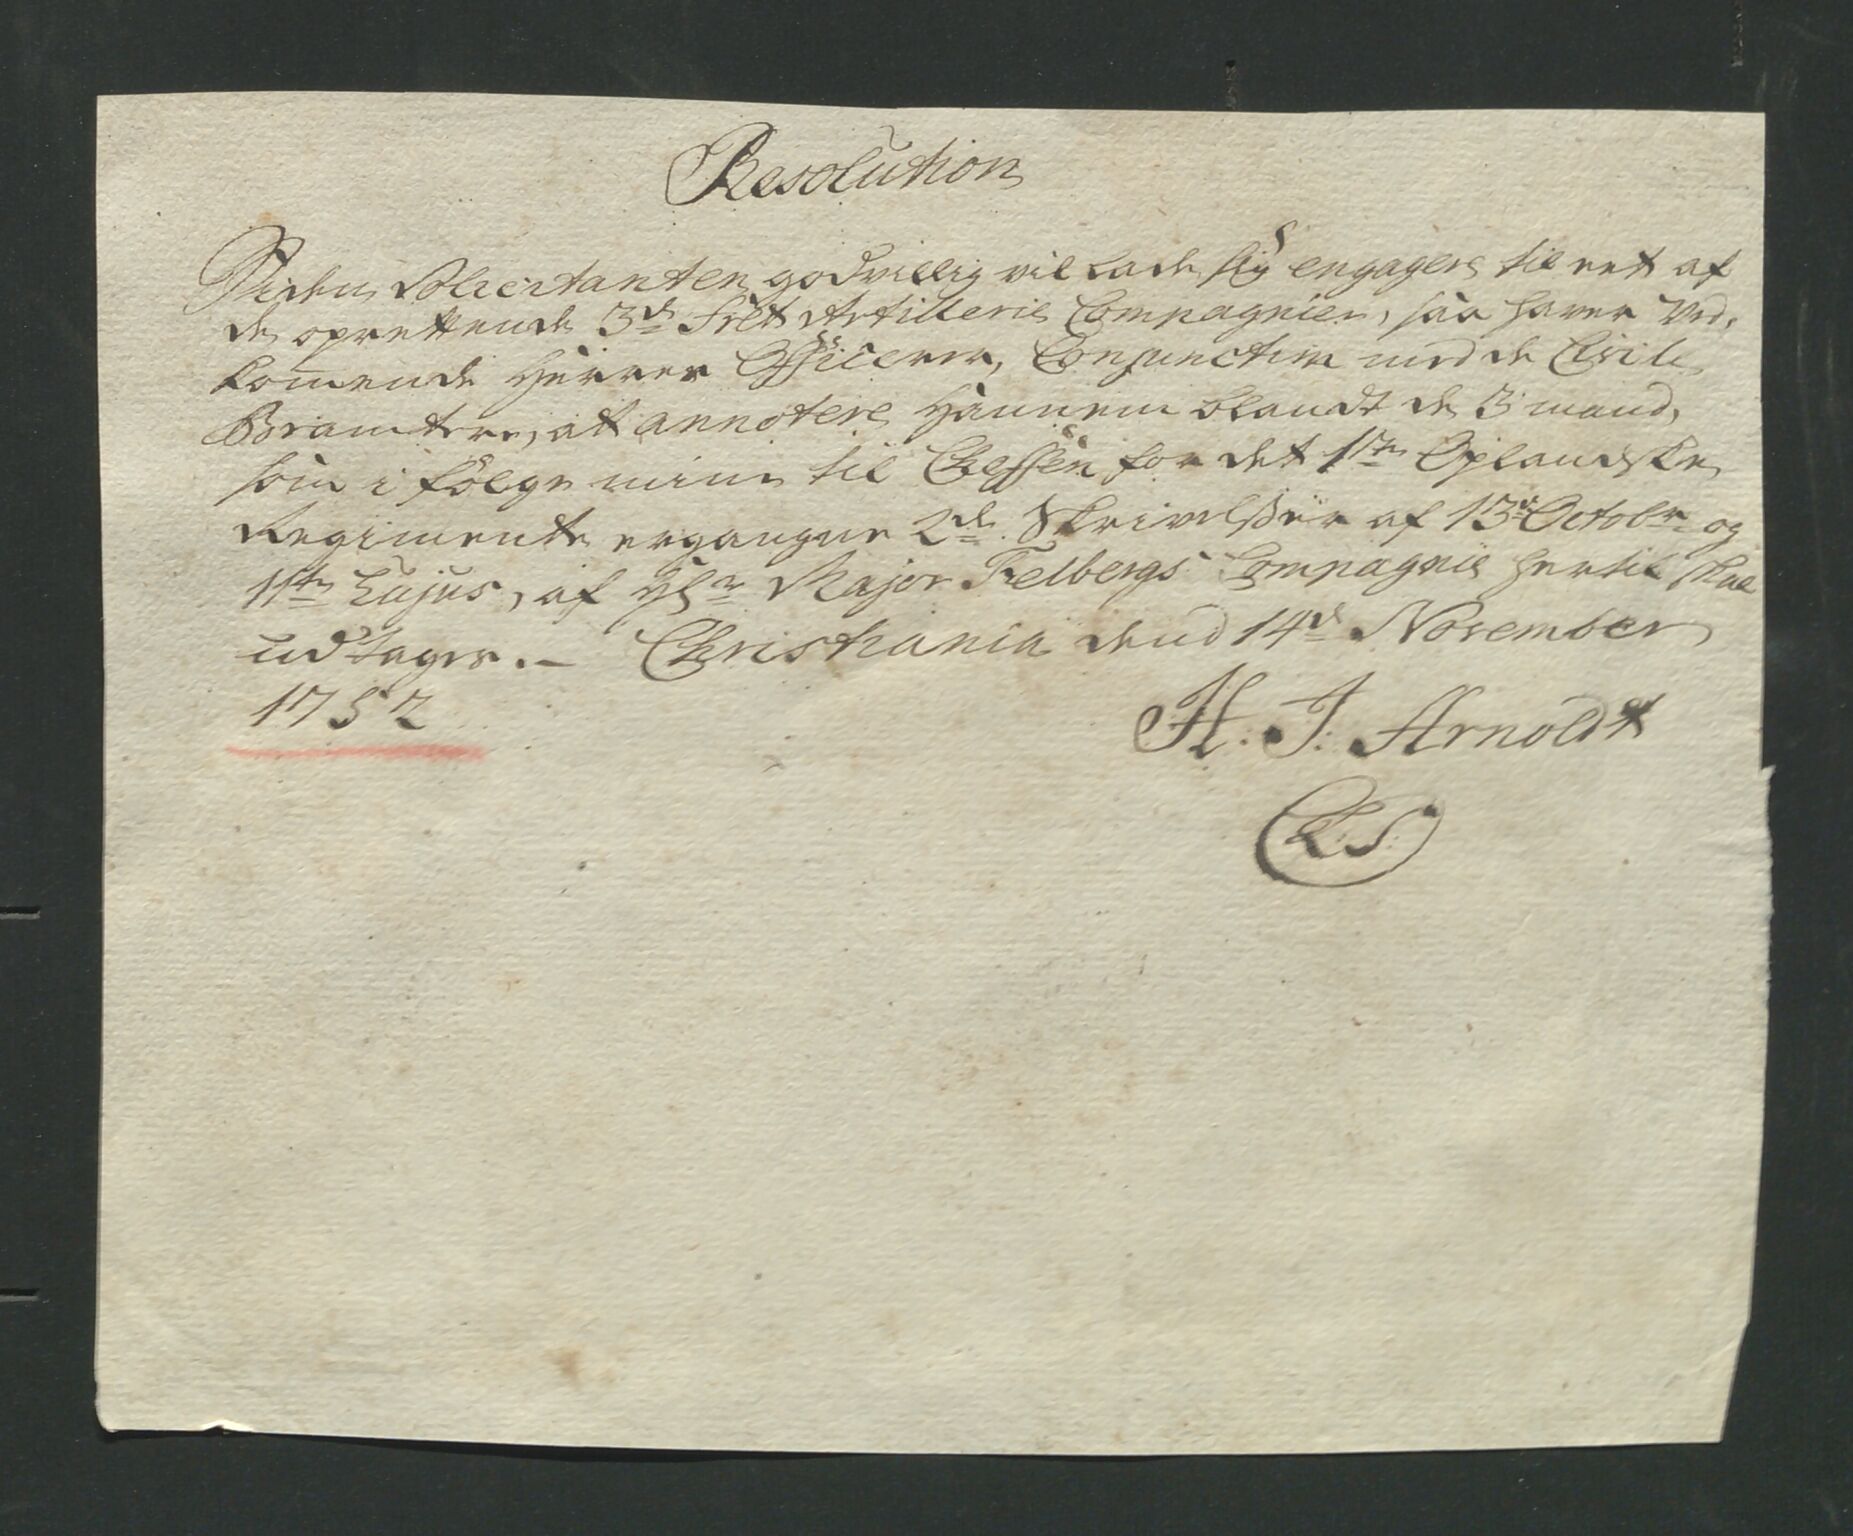 Resolution
Siden Solicitanten godvillig vil lade sig engagere til eet af
de oprettende 3de Felt Artillerie Compagnier, saa haver Ved,
kom̄ende Herrer Officerer, Conjunctim med de Civile
Beamtere, at annotere Hannem blandt de 3 mand,
som i følge mine til Cheffen for det 1ste Oplandske
Regimente ergangne 2de Skrivelßer af 13de Octobr og
11te hujus, af Hr Major Felbergs Compagnie hertil skal
udtages.– Christiania dend 14de November
1752
H: J: Arnoldt
L:S: